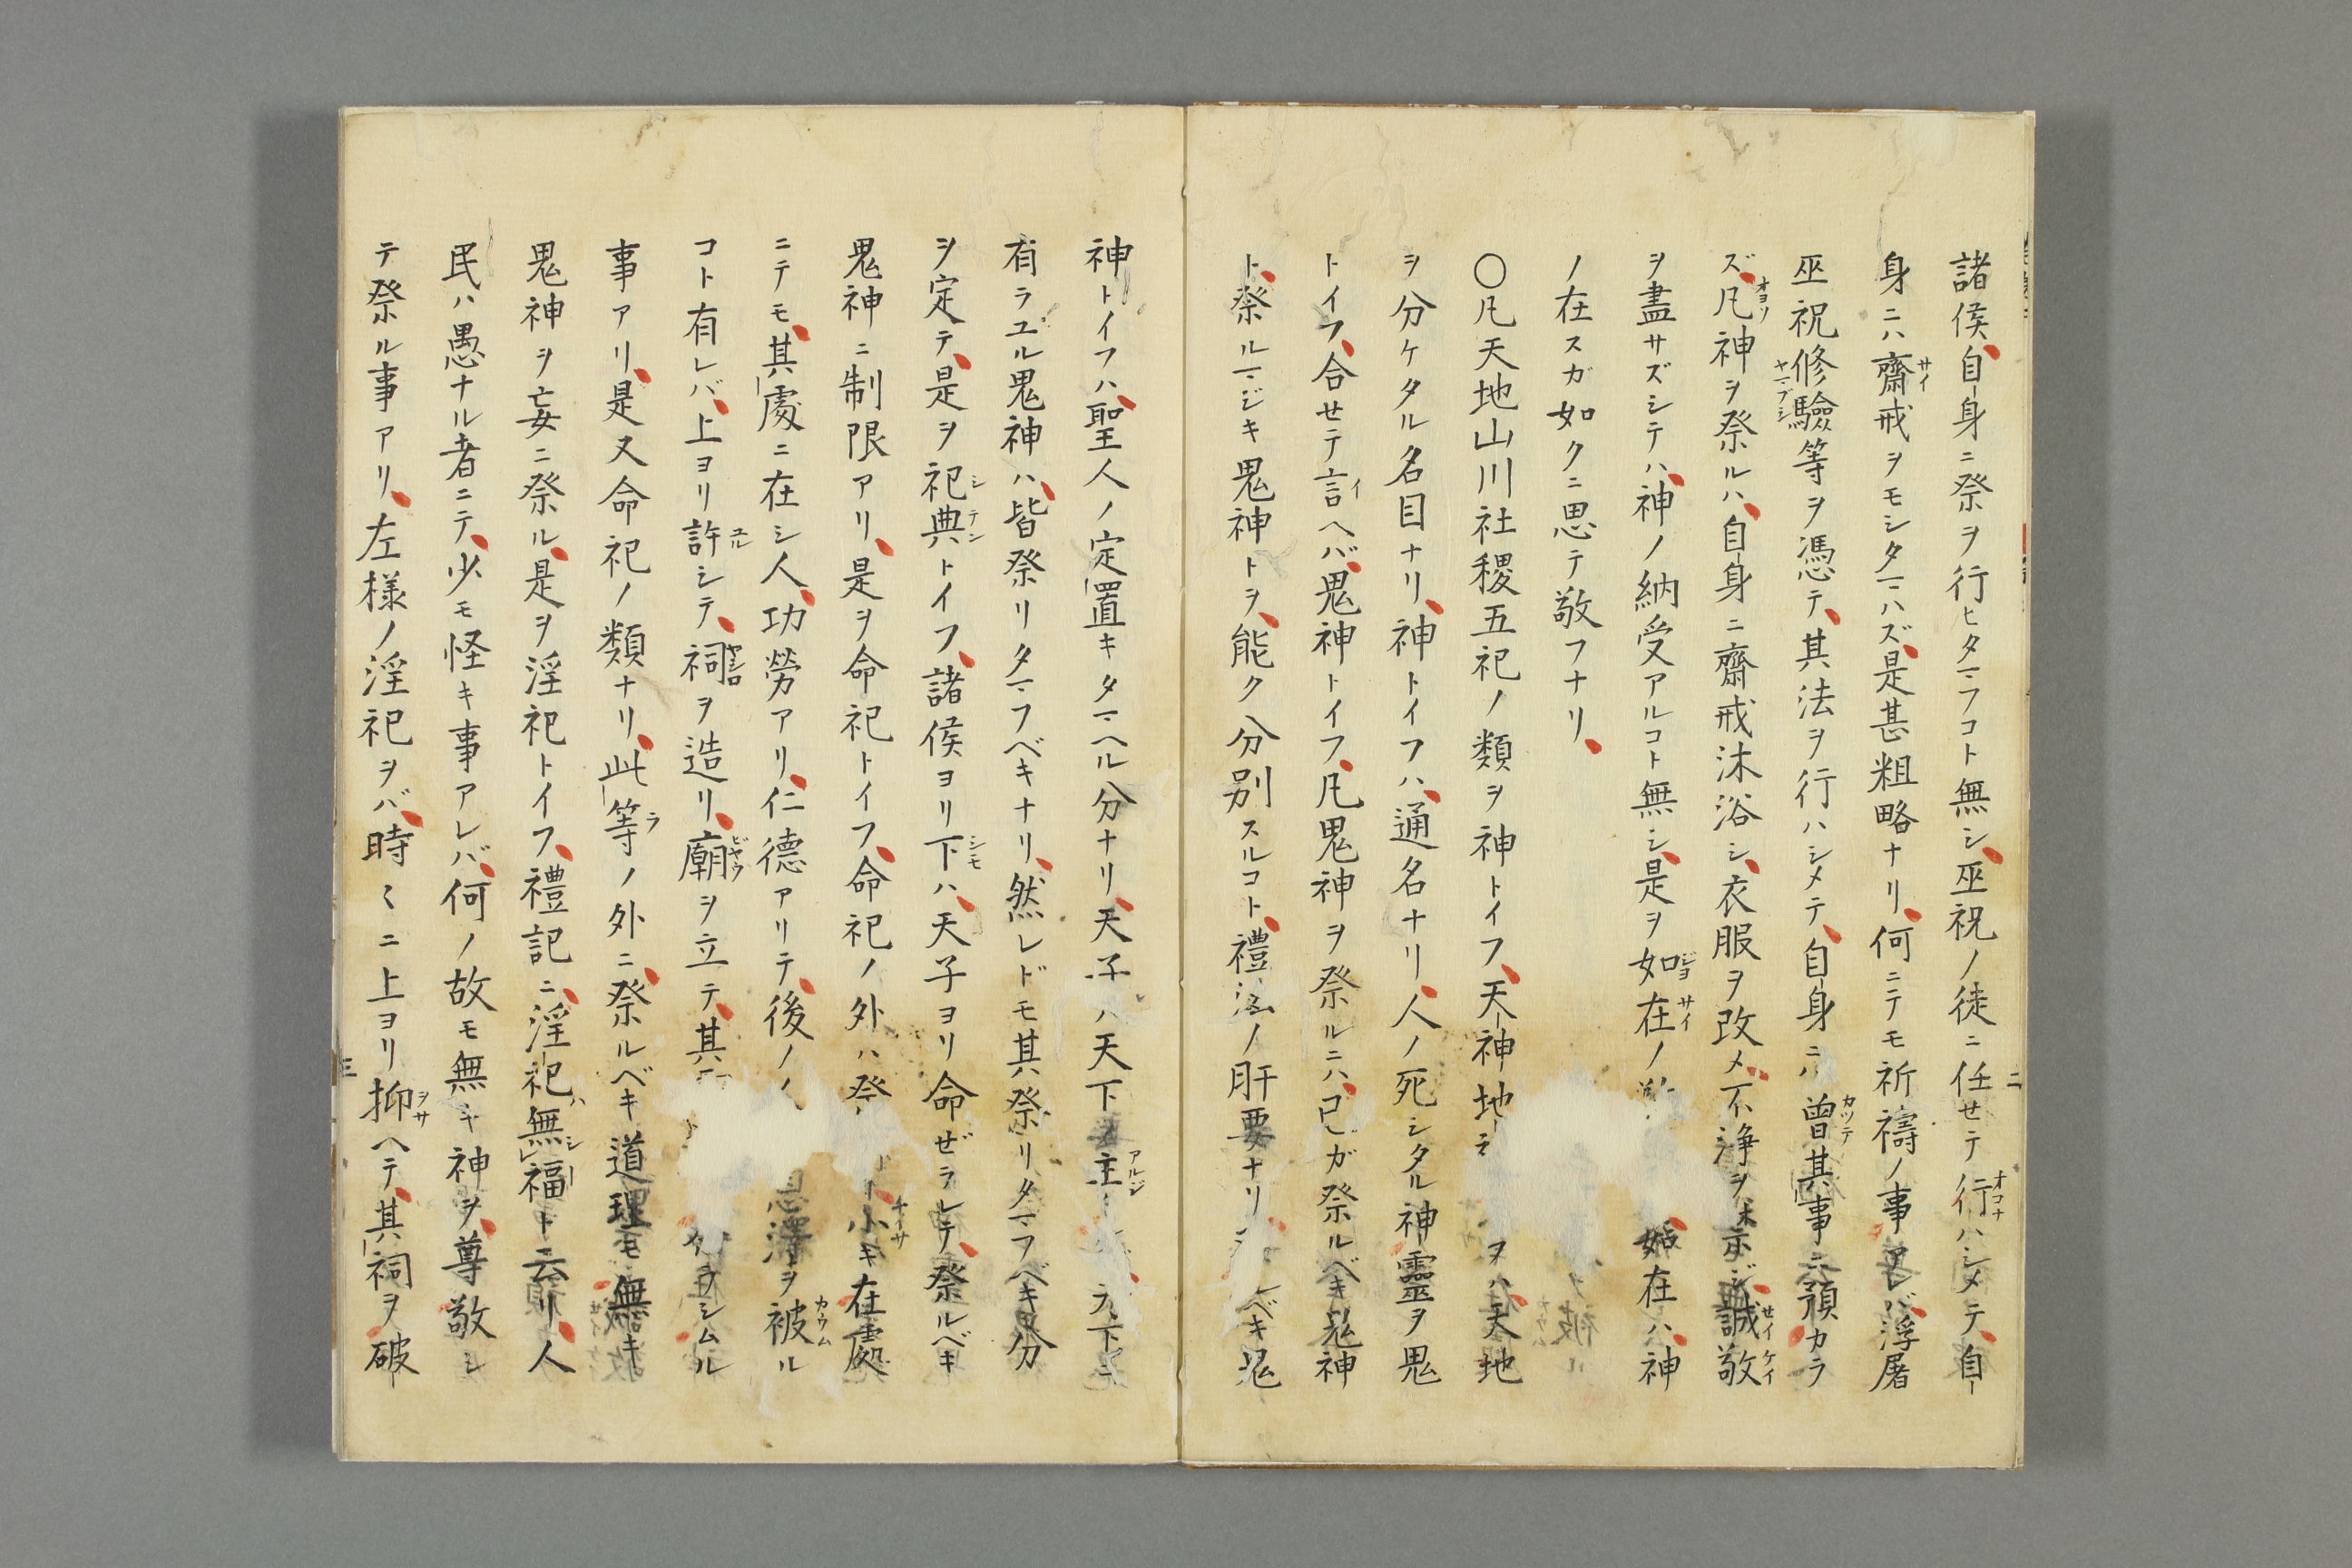 諸侯、自身ニ祭ヲ行ヒタマフコト無シ、巫祝ノ徒ニ任セテ行ハシメテ、自
身ニハ齋戒ヲモシタマハズ、是甚粗略ナリ、何ニテモ祈禱ノ事アレバ、浮屠
巫祝修驗等ヲ憑テ、其法ヲ行ハシメテ、自身ニハ曾其事ニ預カラ
ズ、凡神ヲ祭ルハ、自身ニ齋戒沐浴シ、衣服ヲ改メ、不淨ヲ示ジ、誠敬
ヲ盡サズシテハ、神ノ納受アルコト無シ、是ヲ如在ノ 如在ハ、神
ノ在スガ如クニ思テ敬フナリ、
〇凡天地山川社稷五祀ノ類ヲ神トイフ、天神地 ヲハ天地
ヲ分ケタル名目ナリ、神トイフハ、通名ナリ、人ノ死シタル神靈ヲ鬼
トイフ、合セテ言ヘバ、鬼神トイフ、凡鬼神ヲ祭ルニハ、己ガ祭ルベキ鬼神
ト、祭ルマジキ鬼神トヲ、能ク分別スルコト、禮法ノ肝要ナリ、 ベキ鬼
神トイフハ、聖人ノ定置キタマヘル分ナリ、天子ハ天下ノ主 天下ニ
有ラユル鬼神ハ、皆祭リタマフベキナリ、然レドモ其祭リタマフベキ分
ヲ定テ、是ヲ祀典トイフ、諸侯ヨリ下ハ、天子ヨリ命ゼラレテ、祭ルベキ
鬼神ニ制限アリ、是ヲ命祀トイフ、命祀ノ外ハ祭 小キ在處
ニテモ、其處ニ在シ人、功勞アリ、仁德アリテ、後ノ 澤ヲ被ル
コト有レバ、上ヨリ許シテ、祠ヲ造リ、廟ヲ立テ、其 ラシムル
事アリ、是又命祀ノ類ナリ、此等ノ外ニ、祭ルベキ道理モ無キ
鬼神ヲ妄ニ祭ル、是ヲ淫祀トイフ、禮記ニ、淫祀無福ト云リ、人
民ハ愚ナル者ニテ、少モ怪キ事アレバ、何ノ故モ無キ神ヲ、尊敬シ
テ祭ル事アリ、左樣ノ淫祀ヲバ、時〱ニ上ヨリ抑ヘテ、其祠ヲ破